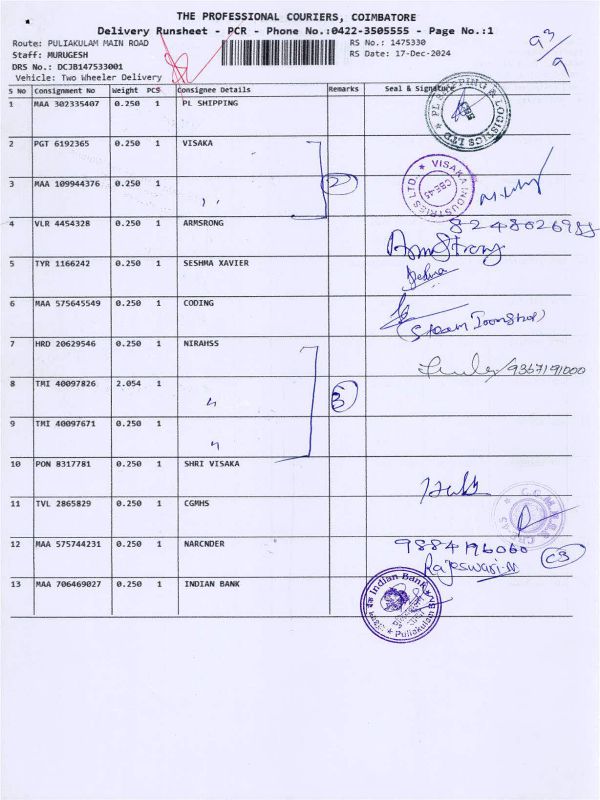 THE PROFESSIONAL COURIERS, COIMBATORE
Delivery Runsheet - PCR - Phone No.:0422-3505555 - Page No.:1
Route: PULIAKULAM MAIN ROAD RS No.: 1475330
Staff: MURUGESH RS Date: 17-Dec-2024
DRS No.: DCJB147533001
Vehicle: Two Wheeler Delivery
93/9
S No Consignment No Weight PCS Consignee Details Remarks Seal & Signature
1 MAA 302335407 0.250 1 PL SHIPPING PL SHIPPING & LOGISTICS LTD
2 PGT 6192365 0.250 1 VISAKA
3 MAA 109944376 0.250 1 " 2 VISAKA INDUSTRIES LTD. CBE-45
4 VLR 4454328 0.250 1 ARMSRONG 8248026985
Armstrong
5 TYR 1166242 0.250 1 SESHMA XAVIER
6 MAA 575645549 0.250 1 CODING
7 HRD 20629546 0.250 1 NIRAHSS /9367191000
8 TMI 40097826 2.054 1 " 3
9 TMI 40097671 0.250 1 "
10 PON 8317781 0.250 1 SHRI VISAKA
11 TVL 2865829 0.250 1 CGMHS
12 MAA 575744231 0.250 1 NARCNDER 9884196060
Rajeswari.M C3
13 MAA 706469027 0.250 1 INDIAN BANK Indian Bank Puliakulam Br